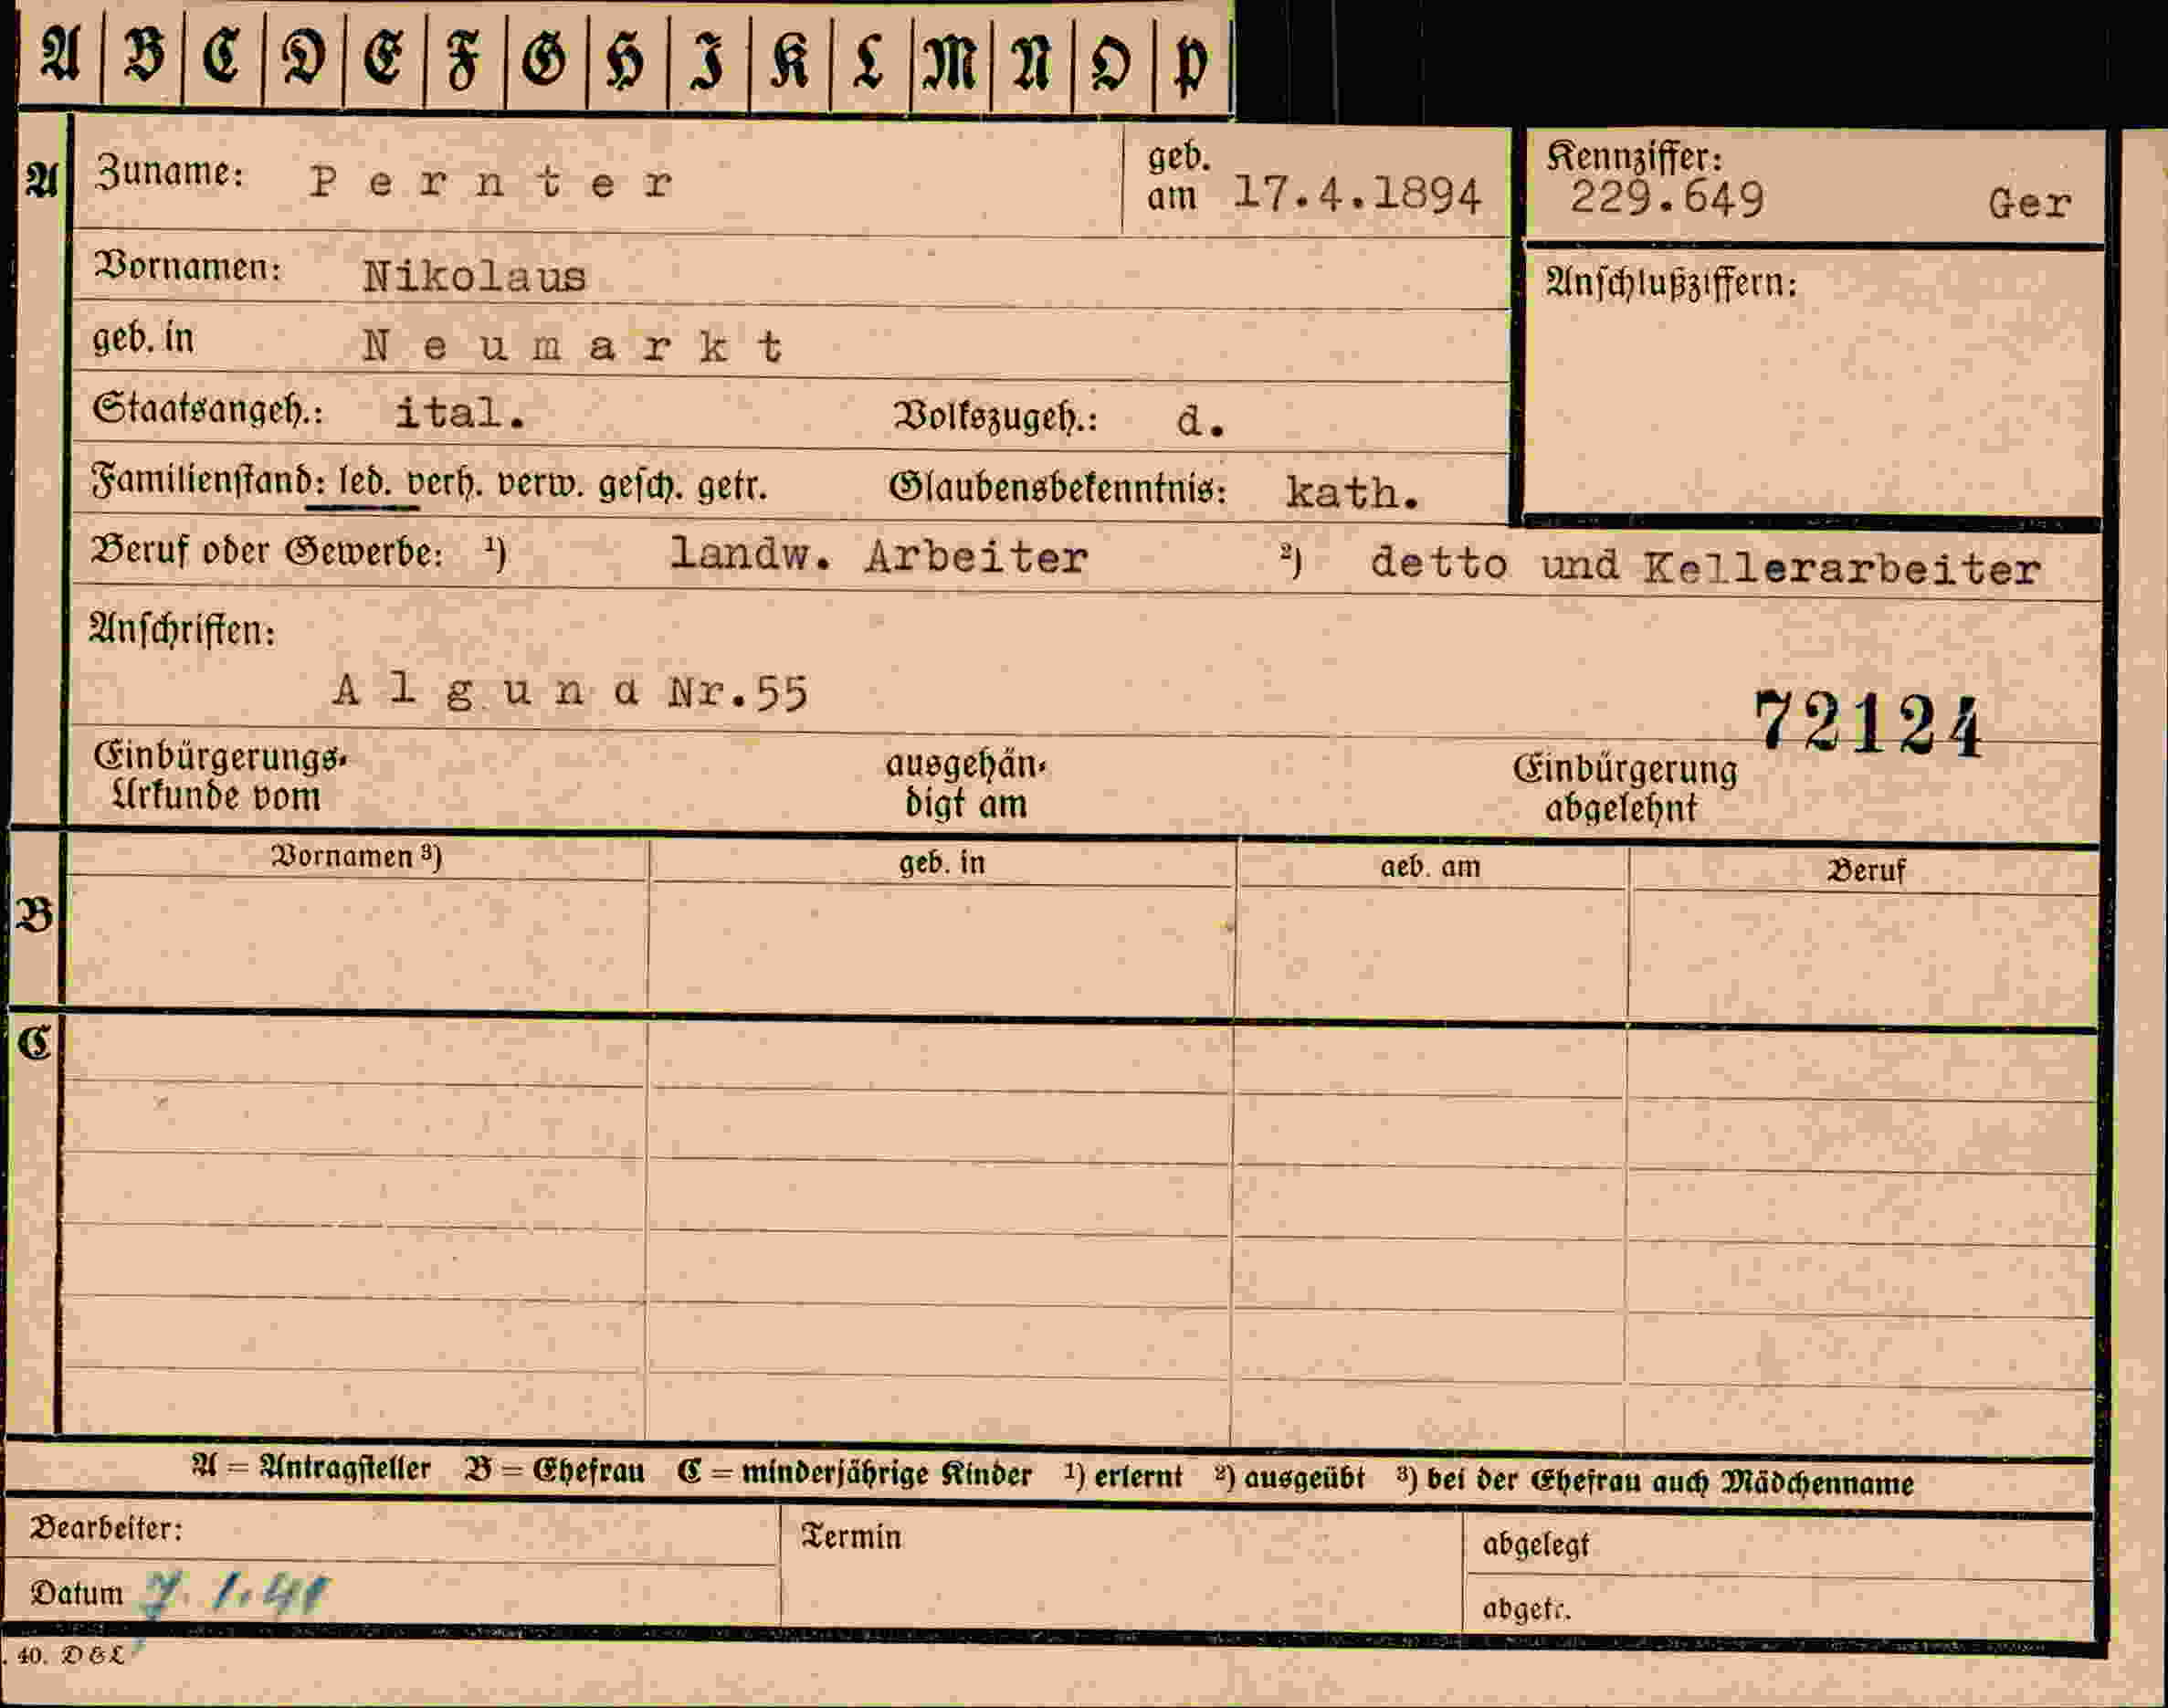 A B C D E F G H I K L M N O P
A Zuname: Pernter geb. am 17.4.1894 Kennziffer: 229.649 Ger
Vornamen: Nikolaus Anschlußziffern:
geb. in Neumarkt
Staatsangeh.: ital. Volkszugeh.: d.
Familienstand: led. verh. verw. gesch. getr. Glaubensbekenntnis: kath.
Beruf oder Gewerbe: ¹) landw. Arbeiter ²) detto und Kellerarbeiter
Anschriften:
Algund Nr.55
72124
Einbürgerungs-Urkunde vom ausgehändigt am Einbürgerung abgelehnt
Vornamen ³) geb. in geb. am Beruf
B
C
A = Antragsteller B = Ehefrau C = minderjährige Kinder ¹) erlernt ²) ausgeübt ³) bei der Ehefrau auch Mädchenname
Bearbeiter: Termin abgelegt
Datum 7.1.41 abgetr.
. 40. D&L